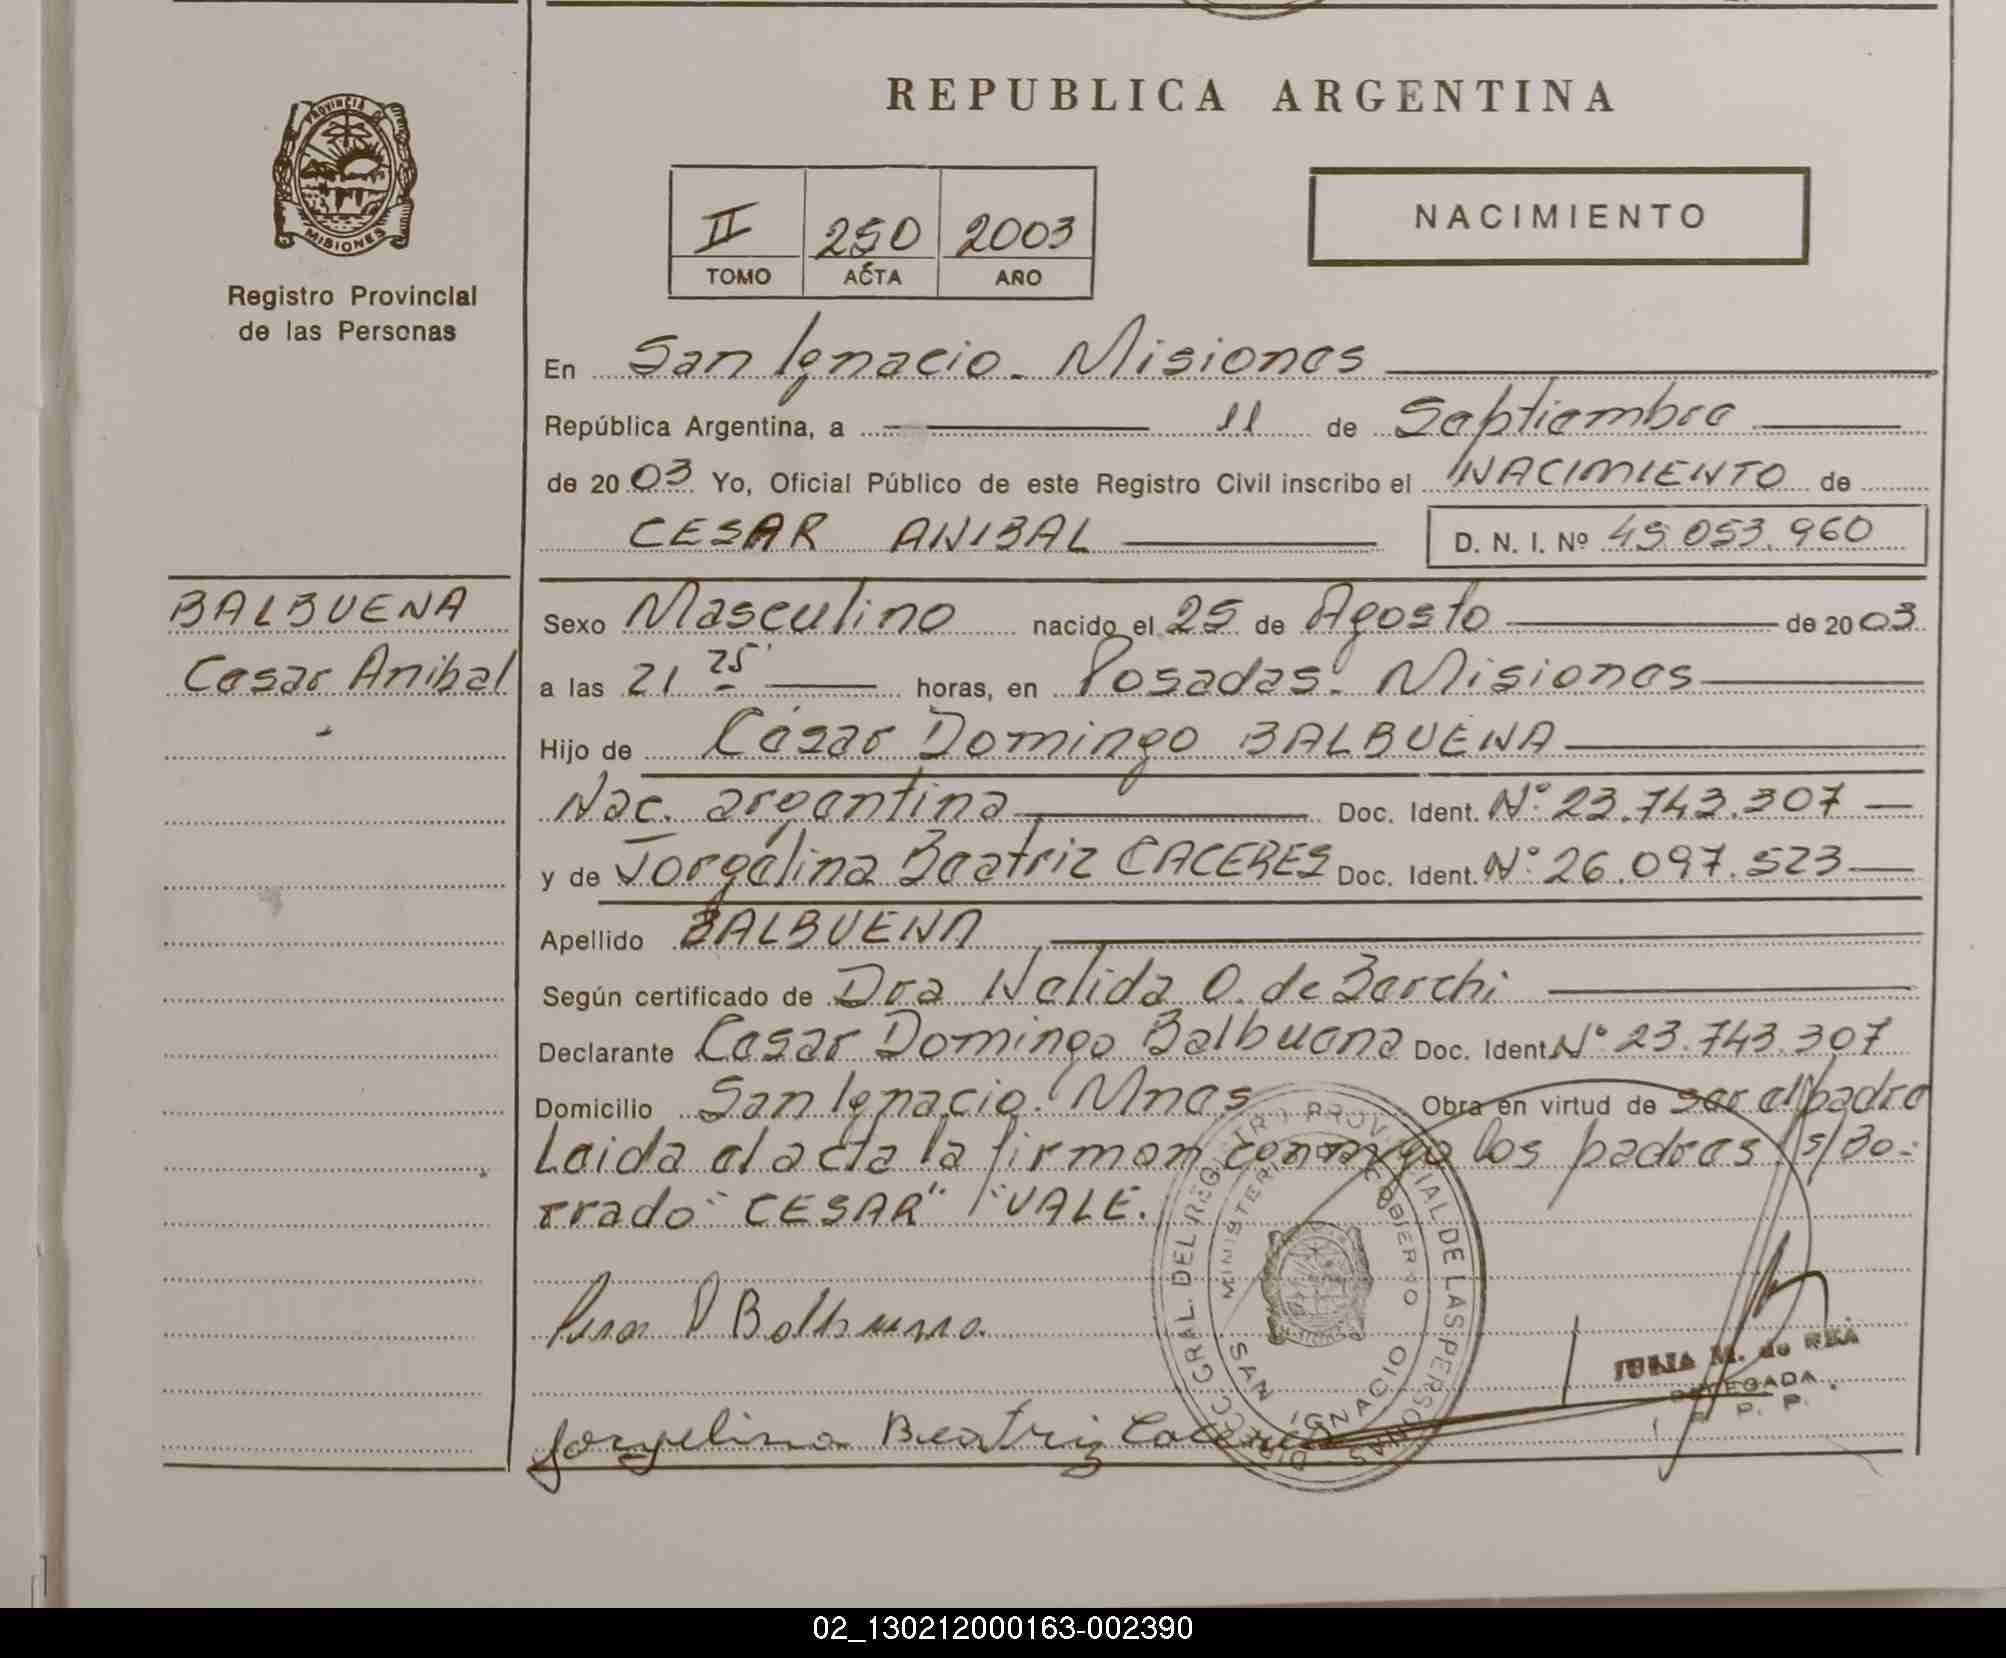 REPUBLICA ARGENTINA
PROVINCIA DE
MISIONES
Registro Provincial
de las Personas
II 250 2003
TOMO ACTA AÑO
NACIMIENTO
En San Ignacio. Misiones
República Argentina, a 11 de Septiembre
de 2003 Yo, Oficial Público de este Registro Civil inscribo el NACIMIENTO de
CESAR ANIBAL D. N. I. Nº 45.053.960
BALBUENA
Cesar Anibal
Sexo Masculino nacido el 25 de Agosto de 2003
a las 21 25' horas, en Posadas. Misiones
Hijo de César Domingo BALBUENA
Nac. argentina Doc. Ident. Nº 23.743.307
y de Jorgelina Beatriz CACERES Doc. Ident. Nº 26.097.523
Apellido BALBUENA
Según certificado de Dra Nelida O. de Berchi
Declarante Cesar Domingo Balbuena Doc. Ident. Nº 23.743.307
Domicilio San Ignacio. Mnes Obra en virtud de ser el padre
Leida el acta la firman conmigo los padres. S/Bo-
rrado "CESAR" "VALE.
D Balbuena
Jorgelina Beatriz Caceres
DIRECC. GRAL. DEL REGISTRO PROVINCIAL DE LAS PERSONAS
MINISTERIO DE GOBIERNO
SAN IGNACIO
JULIA M. de REA
DELEGADA
R. P. P.
02_130212000163-002390